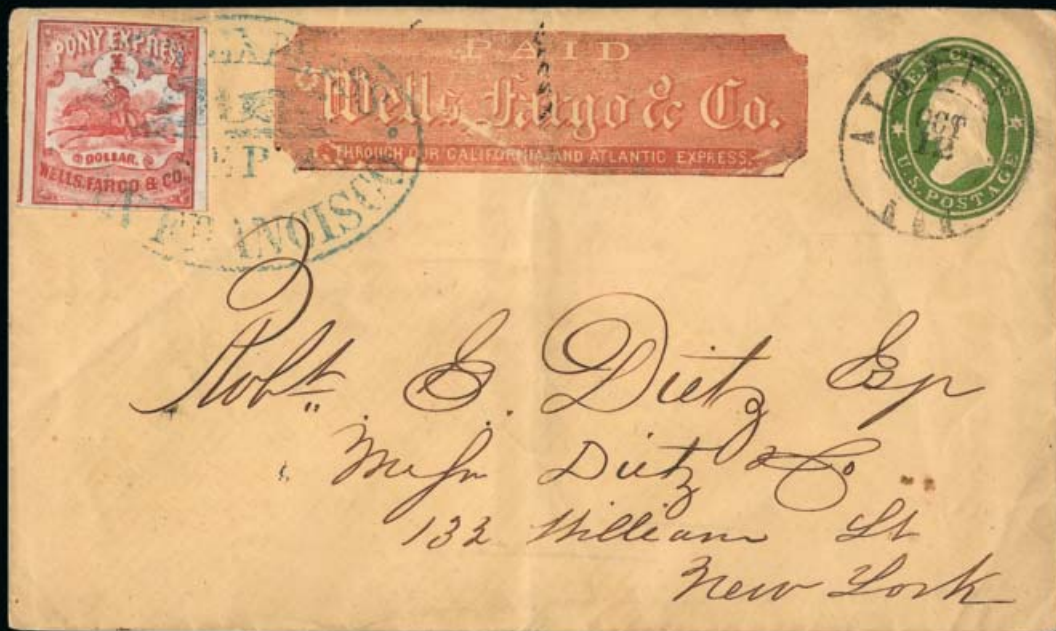 PONY EXPRESS
DOLLAR.
WELLS, FARGO & CO.
PAID
Wells Fargo & Co.
THROUGH OUR CALIFORNIA AND ATLANTIC EXPRESS.
FRANCISCO
TEN CENTS
U.S. POSTAGE
OCT
12
Robt. E. Dietz Esqr
Messrs Dietz & Co
132 William St
New York